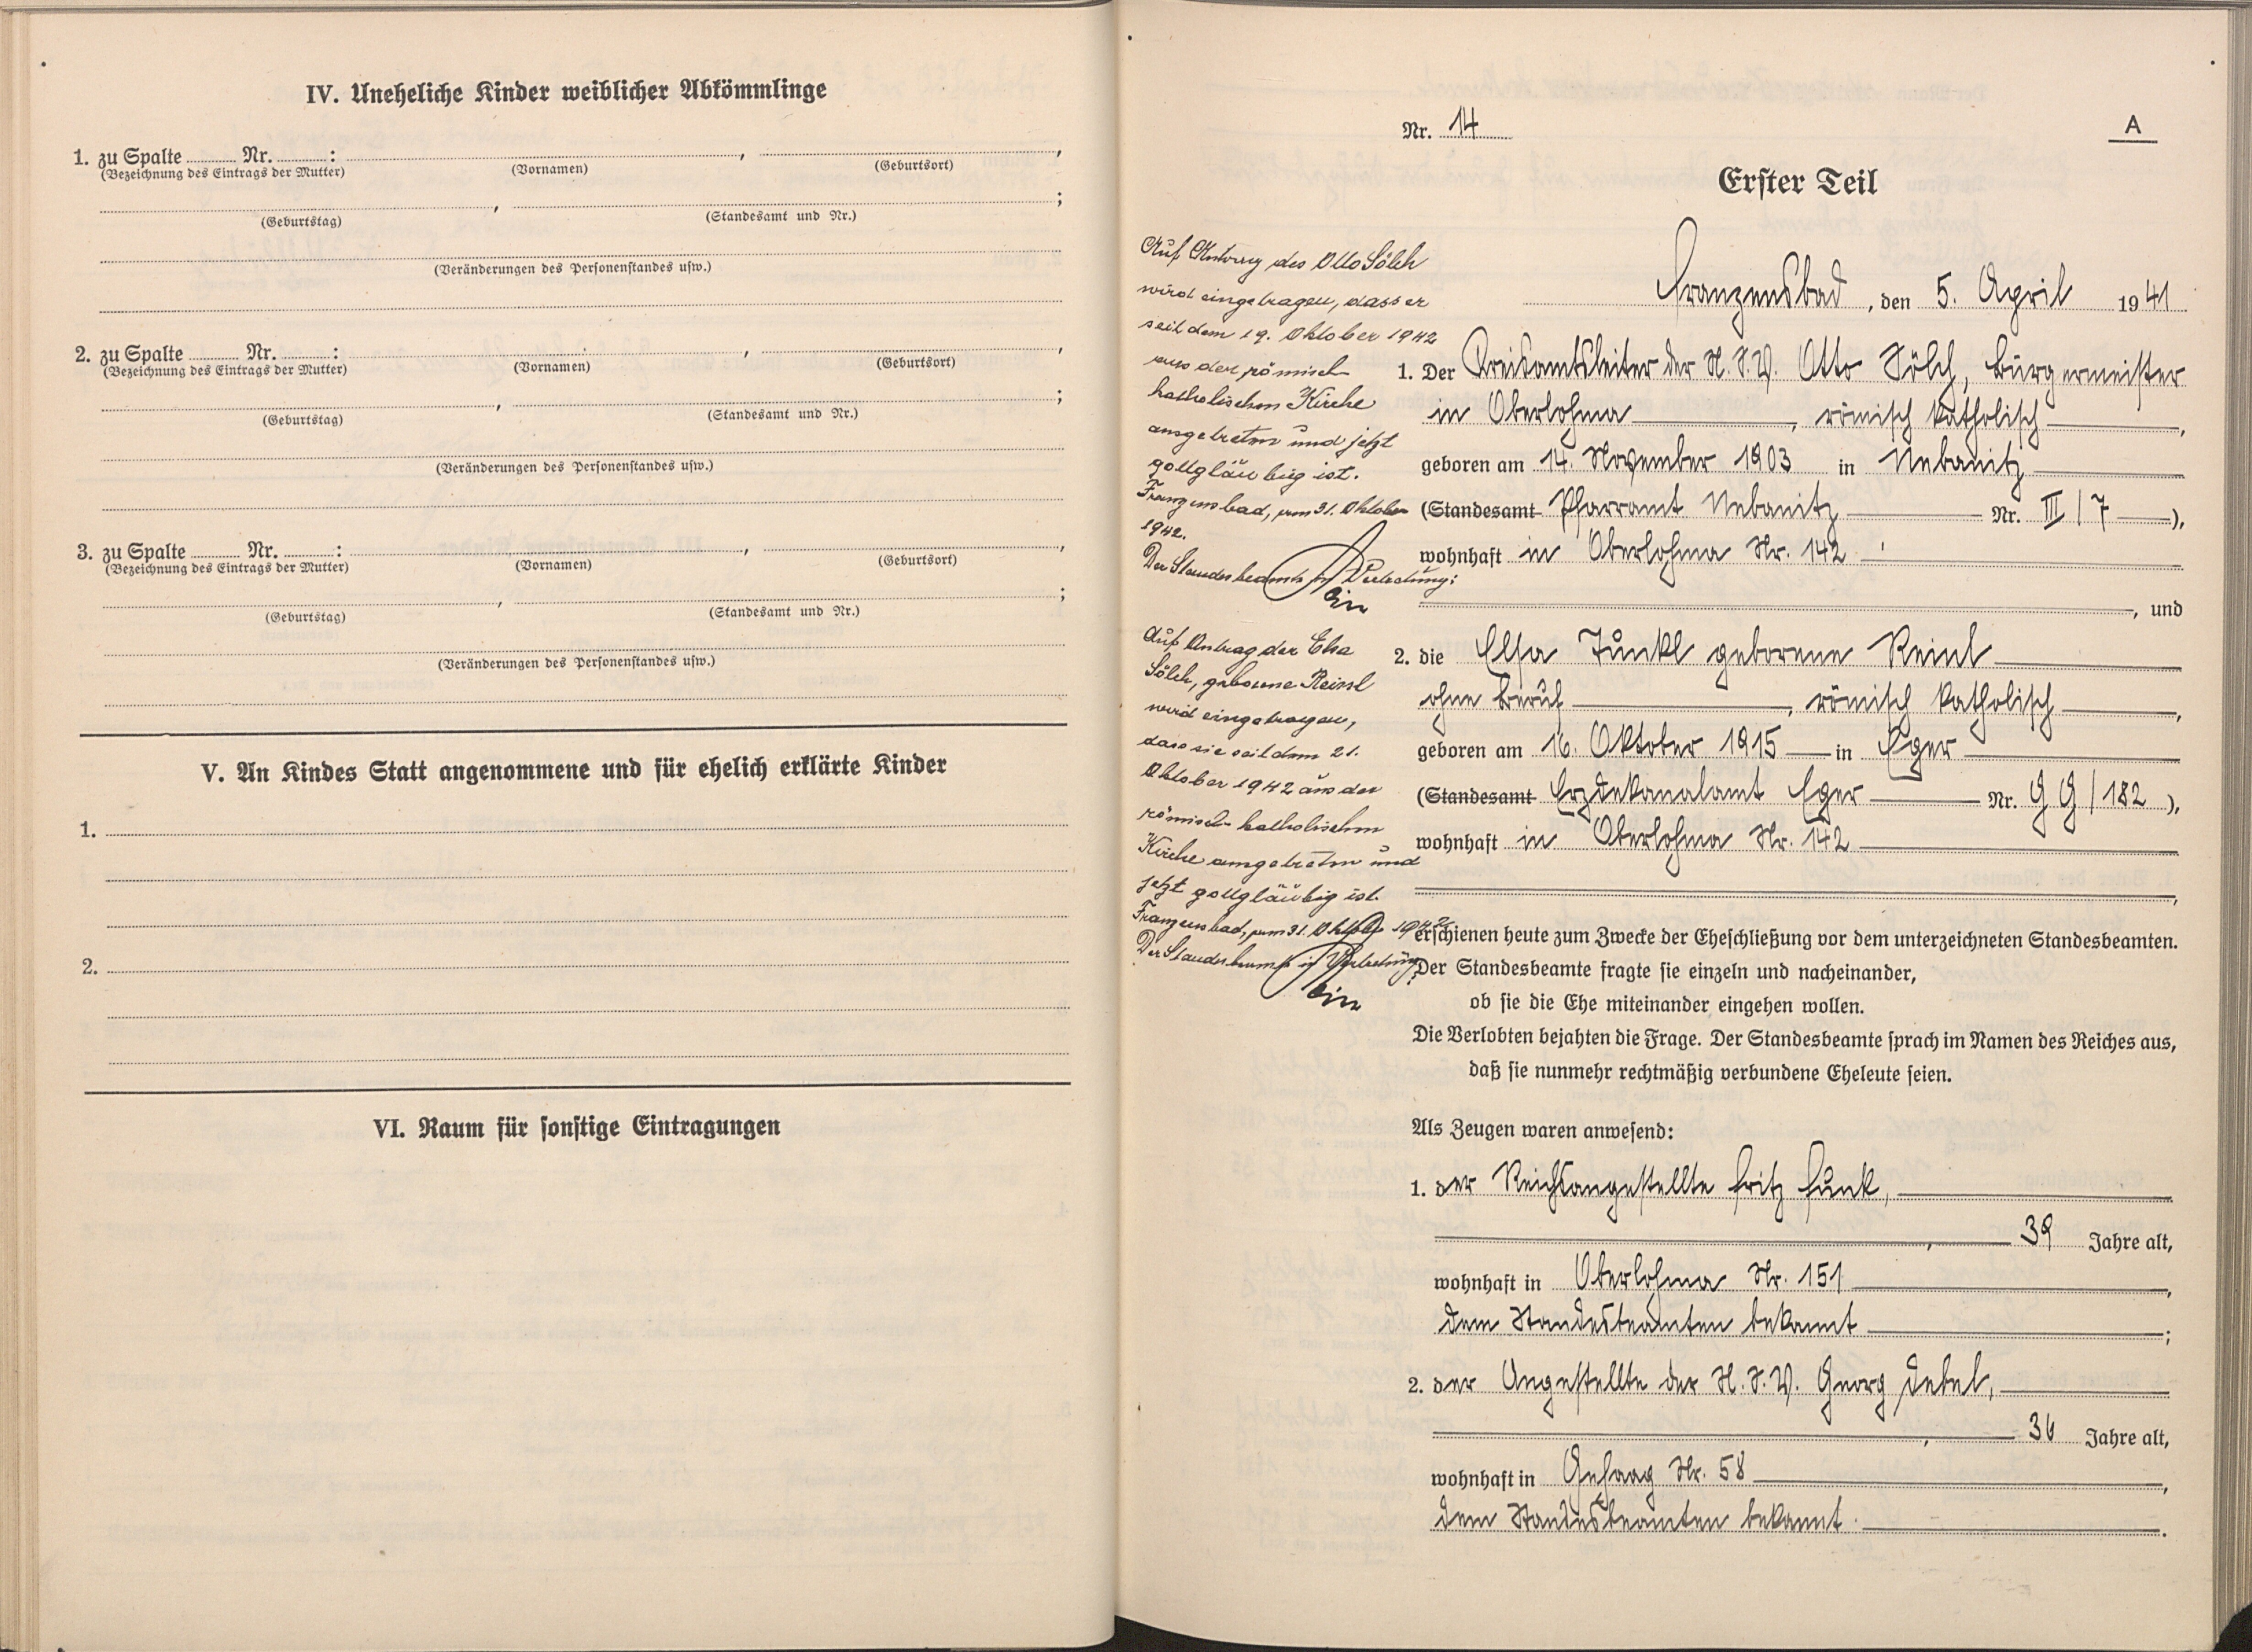 IV. Uneheliche Kinder weiblicher Abkömmlinge
1. zu Spalte Nr. : , ,
(Bezeichnung des Eintrags der Mutter) (Vornamen) (Geburtsort)
, ;
(Geburtstag) (Standesamt und Nr.)
(Veränderungen des Personenstandes usw.)
2. zu Spalte Nr. : , ,
(Bezeichnung des Eintrags der Mutter) (Vornamen) (Geburtsort)
, ;
(Geburtstag) (Standesamt und Nr.)
(Veränderungen des Personenstandes usw.)
3. zu Spalte Nr. : , ,
(Bezeichnung des Eintrags der Mutter) (Vornamen) (Geburtsort)
, ;
(Geburtstag) (Standesamt und Nr.)
(Veränderungen des Personenstandes usw.)
V. An Kindes Statt angenommene und für ehelich erklärte Kinder
1.
2.
VI. Raum für sonstige Eintragungen
Nr. 14
A
Erster Teil
Auf Antrag des Otto Sölch
wird eingetragen, dass er
seit dem 19. Oktober 1942
aus der römisch
katholischen Kirche
ausgetreten und jetzt
gottgläubig ist.
Franzensbad, am 31. Oktober
1942.
Der Standesbeamte in Vertretung:
Auf Antrag der Elsa
Sölch, geborene Reinl
wird eingetragen,
dass sie seit dem 21.
Oktober 1942 aus der
römisch-katholischen
Kirche ausgetreten und
jetzt gottgläubig ist.
Franzensbad, am 31. Oktob. 1942
Der Standesbeamte in Vertretung:
Franzensbad, den 5. April 1941
1. Der Kreisamtsleiter der N.S.V. Otto Sölch, Bürgermeister
in Oberlohma, römisch katholisch,
geboren am 14. November 1903 in Nebanitz
(Standesamt Pfarramt Nebanitz Nr. III/7),
wohnhaft in Oberlohma Nr. 142
, und
2. die Elsa Junkl geborene Reinl
ohne Beruf, römisch katholisch,
geboren am 16. Oktober 1915 in Eger
(Standesamt Erzdekanalamt Eger Nr. GG/182),
wohnhaft in Oberlohma Nr. 142
,
erschienen heute zum Zwecke der Eheschließung vor dem unterzeichneten Standesbeamten.
Der Standesbeamte fragte sie einzeln und nacheinander,
ob sie die Ehe miteinander eingehen wollen.
Die Verlobten bejahten die Frage. Der Standesbeamte sprach im Namen des Reiches aus,
daß sie nunmehr rechtmäßig verbundene Eheleute seien.
Als Zeugen waren anwesend:
1. der Reichsangestellte Fritz Funk,
, 39 Jahre alt,
wohnhaft in Oberlohma Nr. 151,
dem Standesbeamten bekannt;
2. der Angestellte der N.S.V. Georg Debel,
, 36 Jahre alt,
wohnhaft in Gehaag Nr. 58,
dem Standesbeamten bekannt.